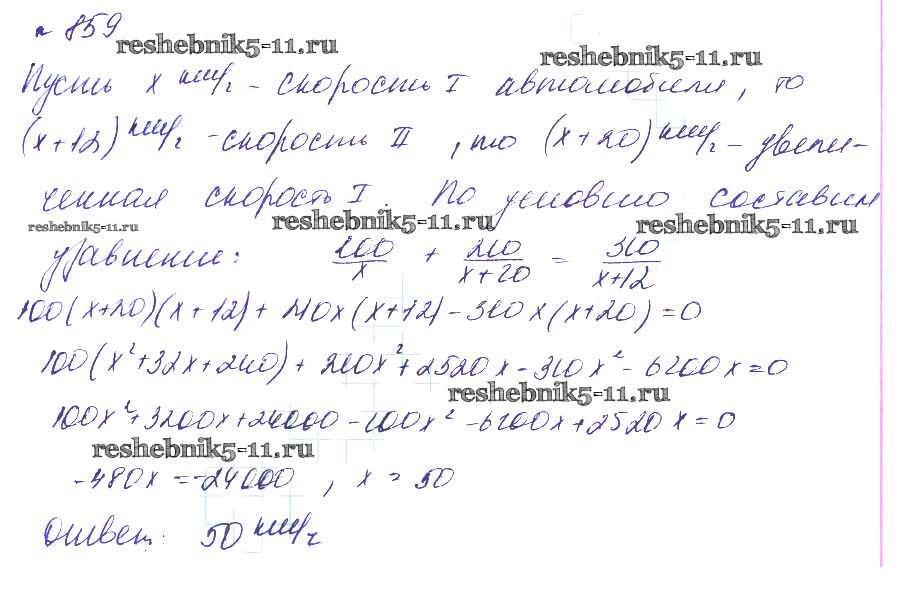 № 859
reshebnik5-11.ru reshebnik5-11.ru
Пусть x км/ч - скорость I автомобиля, то
(x+12) км/ч - скорость II, то (x+20) км/ч - увели-
ченная скорость I. По условию составим
reshebnik5-11.ru reshebnik5-11.ru reshebnik5-11.ru
уравнение: 100/x + 210/(x+20) = 310/(x+12)
100(x+20)(x+12) + 210x(x+12) - 310x(x+20) = 0
100(x²+32x+240) + 210x²+2520x - 310x² - 6200x = 0
reshebnik5-11.ru
100x²+3200x+24000 - 100x² - 6200x + 2520x = 0
reshebnik5-11.ru
-480x = -24000, x = 50
Ответ: 50 км/ч